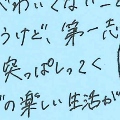 わいくない
うけど、第一志
突っぱしってく
の楽しい生活が